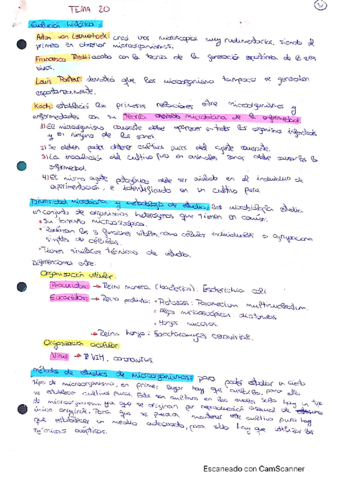 TEMA 20
Evolución histórica:
Anton van Leeuwenhoek creó unos microscopios muy rudimentarios, siendo el
primero en observar microorganismos.
Francesco Redi acabó con la teoría de la generación espontánea de los seres
vivos.
Louis Pasteur demostró que los microorganismos tampoco se generan
espontáneamente.
Koch estableció las primeras relaciones entre microorganismos y
enfermedades con su Teoría microbiana de la enfermedad:
1) El microorganismo causante debe aparecer en todos los organismos infectados
y en ninguno de los sanos.
2) Se deben poder obtener cultivos puros del agente causante.
3) La inoculación del cultivo puro en animales sanos debe causar la
enfermedad.
4) El mismo agente patógeno debe ser aislado en el individuo de
experimentación, e identificado en un cultivo puro.
Diversidad microbiana y metodología de estudio: la microbiología estudia
un conjunto de organismos heterogéneos que tienen en común:
• Su tamaño microscópico.
• Realizan las 3 funciones vitales como células individuales o agrupaciones
simples de células.
• Tienen similares técnicas de estudio.
Diferenciamos entre:
Organización celular:
Procariotas → Reino monera (bacterias). Escherichia coli
Eucariotas → Reino protista: • Protozoos: Paramecium
• Algas microscópicas: diatomeas
• Hongos mucosos
→ Reino hongo: Saccharomyces cerevisiae.
Organización acelular:
Virus → VIH, coronavirus
Métodos de estudios de microorganismos: para poder estudiar un cierto
tipo de microorganismo, en primer lugar hay que aislarlo, para ello
se establecen cultivos puros. Estos son cultivos en los cuales solo hay un tipo
de microorganismo ya que se originan por reproducción asexual de
único organismo. Para que se puedan mantener este cultivo puro hay
que establecer un medio adecuado, para ello hay que utilizar las
técnicas asépticas.
Escaneado con CamScanner